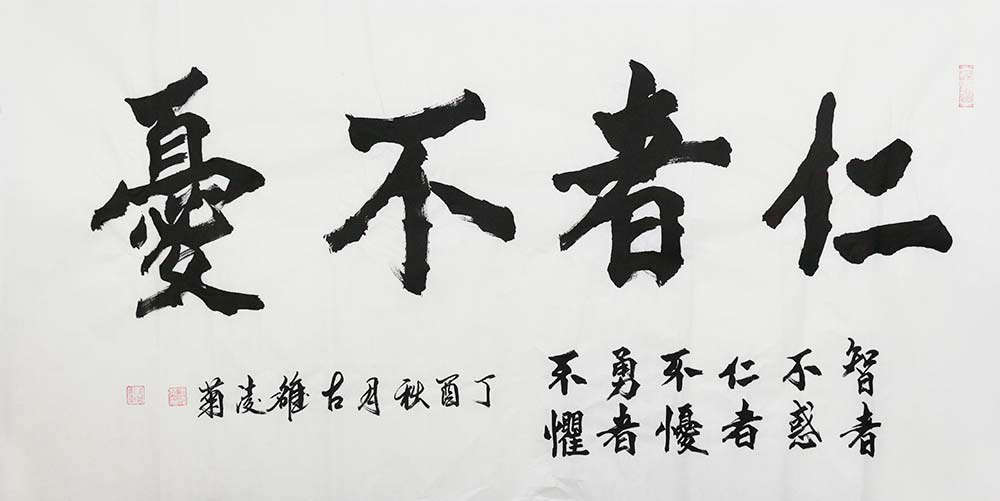 仁者不憂
智者
不惑
仁者
不憂
勇者
不懼
丁酉秋月古雄凌菊